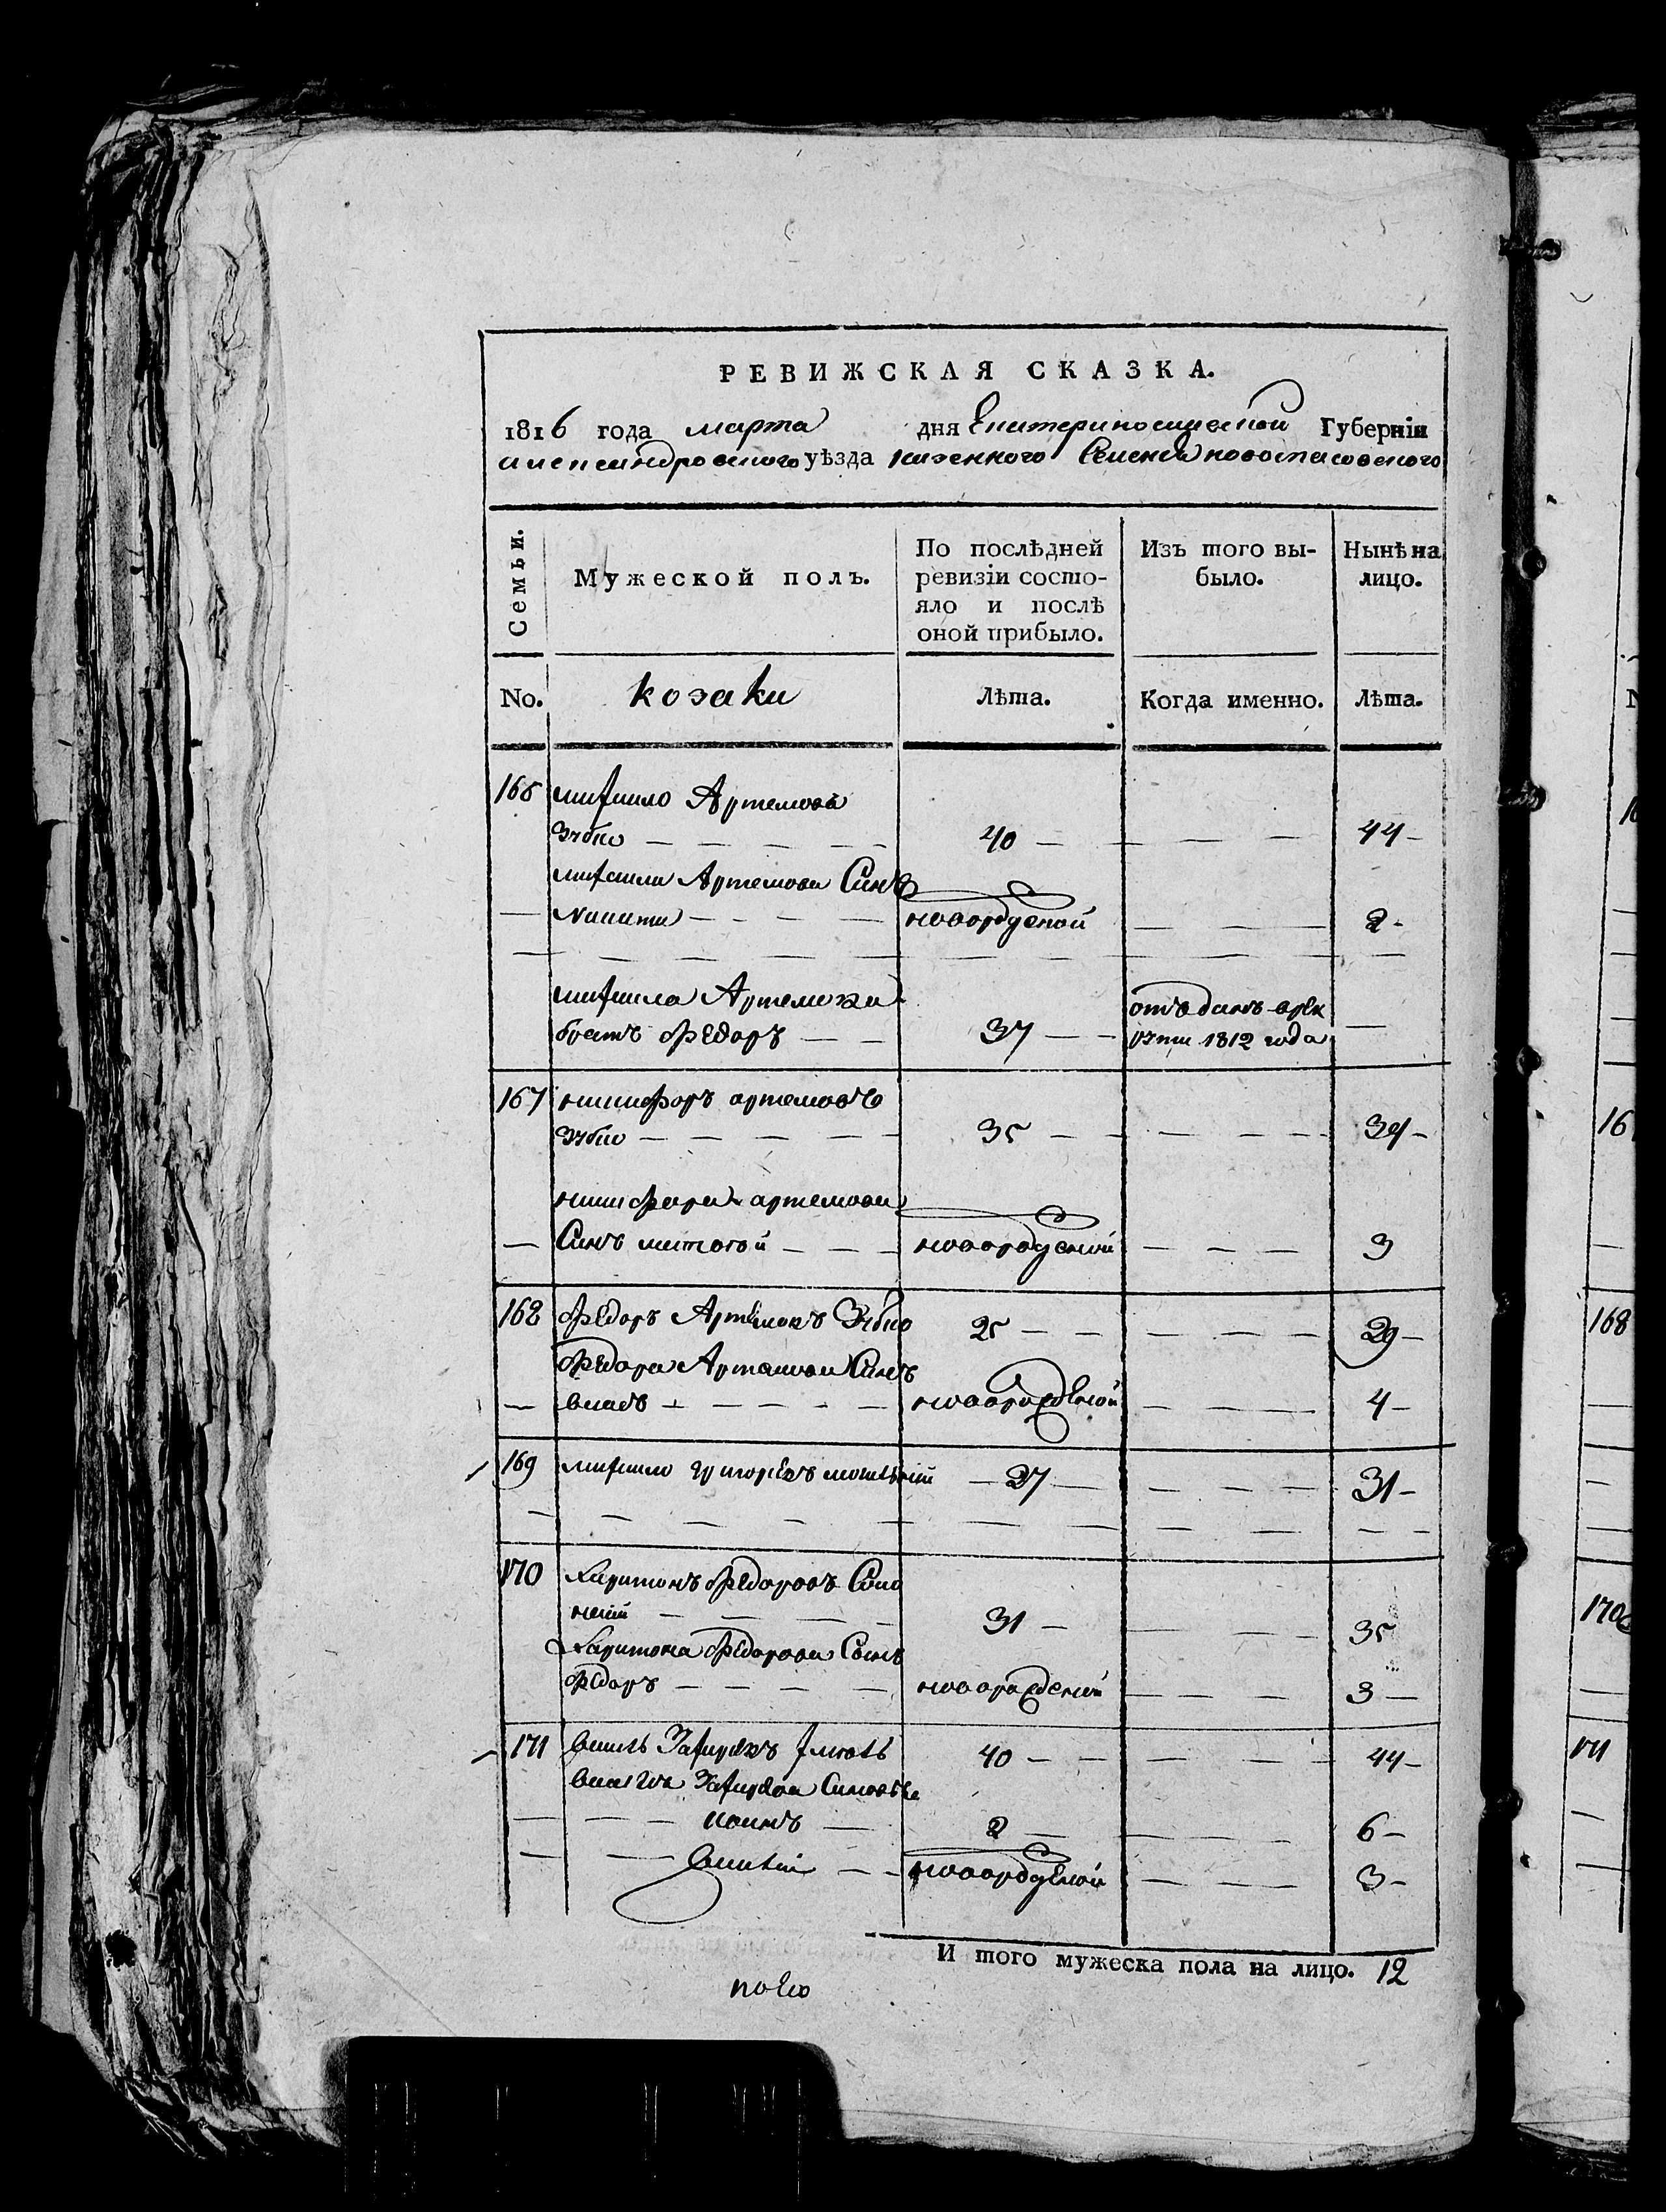 РЕВИЖСКАЯ СКАЗКА.
1816 года марта дня Екатеринославской Губерніи
александровского уѣзда казенного Селенія новоспасовского
Семьи.
Мужеской полъ.
По послѣдней ревизіи состояло и послѣ оной прибыло.
Изъ того выбыло.
Нынѣ на лицо.
No. козаки Лѣта. Когда именно. Лѣта.
166 михайло Артемовъ
Зубко 40 44
михайла Артемова Синъ
никита новорожденой 2
михайла Артемова
братъ Федоръ 37 отъданъ в рек
руты 1812 года
167 никифоръ артемовъ
Зубко 35 39
никифора артемова
Синъ митофей новорожденой 3
168 Федоръ Артемовъ Зубко 25 29
Федора Артемова Синъ
власъ новорожденой 4
169 михайло григорьевъ 27 31
170 Харитонъ Федоровъ
31 35
Харитона Федорова Синъ
Федоръ новорожденой 3
171 Захаріевъ 40 44
Захаріева Синовья
иванъ 2 6
новорожденой 3
И того мужеска пола на лицо. 12